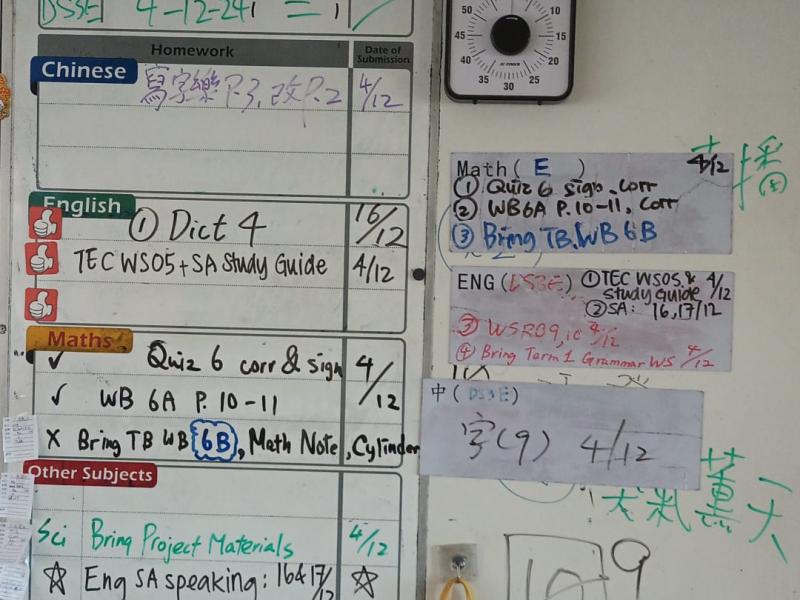 DSSE 4-12-24 =
Homework
Date of Submission
Chinese
寫字樂 P.3, 改P.2 4/12
English
① Dict 4 16/12
TEC WS05 + SA Study Guide 4/12
Maths
✓ Quiz 6 corr & sign 4/12
✓ WB 6A P. 10-11
X Bring TB WB 6B, Math Note, Cylinder
Other Subjects
Sci Bring Project Materials 4/12
☆ Eng SA speaking: 16&17/12 ☆
50 10
45 15
40 20
35 30 25
Math ( E ) 4/12
① Quiz 6 sign. corr
② WB6A P. 10-11, corr
③ Bring TB.WB 6B
ENG (DS3E) ① TEC WS05 & study Guide 4/12
② SA: 16,17/12
③ WSR09, 10 4/12
④ Bring Term 1 Grammar WS 4/12
中 (DS3E)
字(9) 4/12
播
9